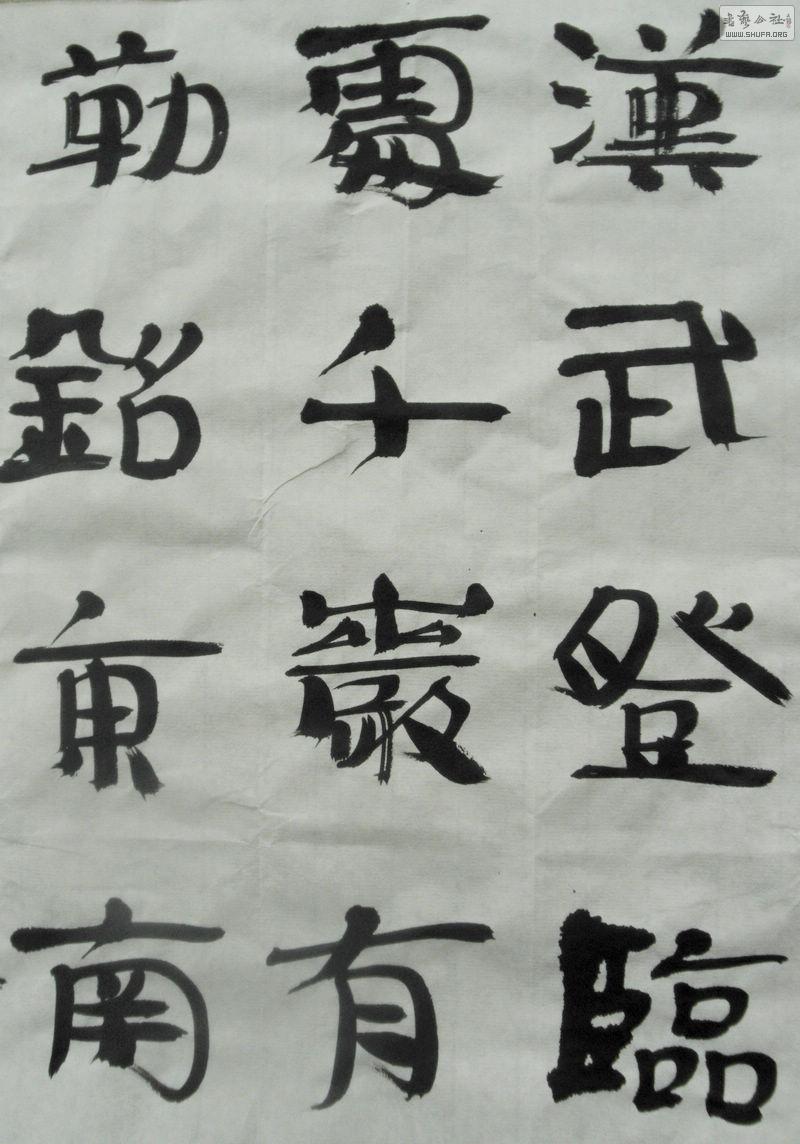 漢武登臨
處千巖有
勒銘東南
书艺公社
WWW.SHUFA.ORG